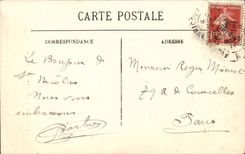 CARTE POSTALE
CORRESPONDANCE
ADRESSE
Le Bonjour de
St Nicolas
Nous vous
embrassons
Monsieur Roger
79 R de Courcelles
Paris